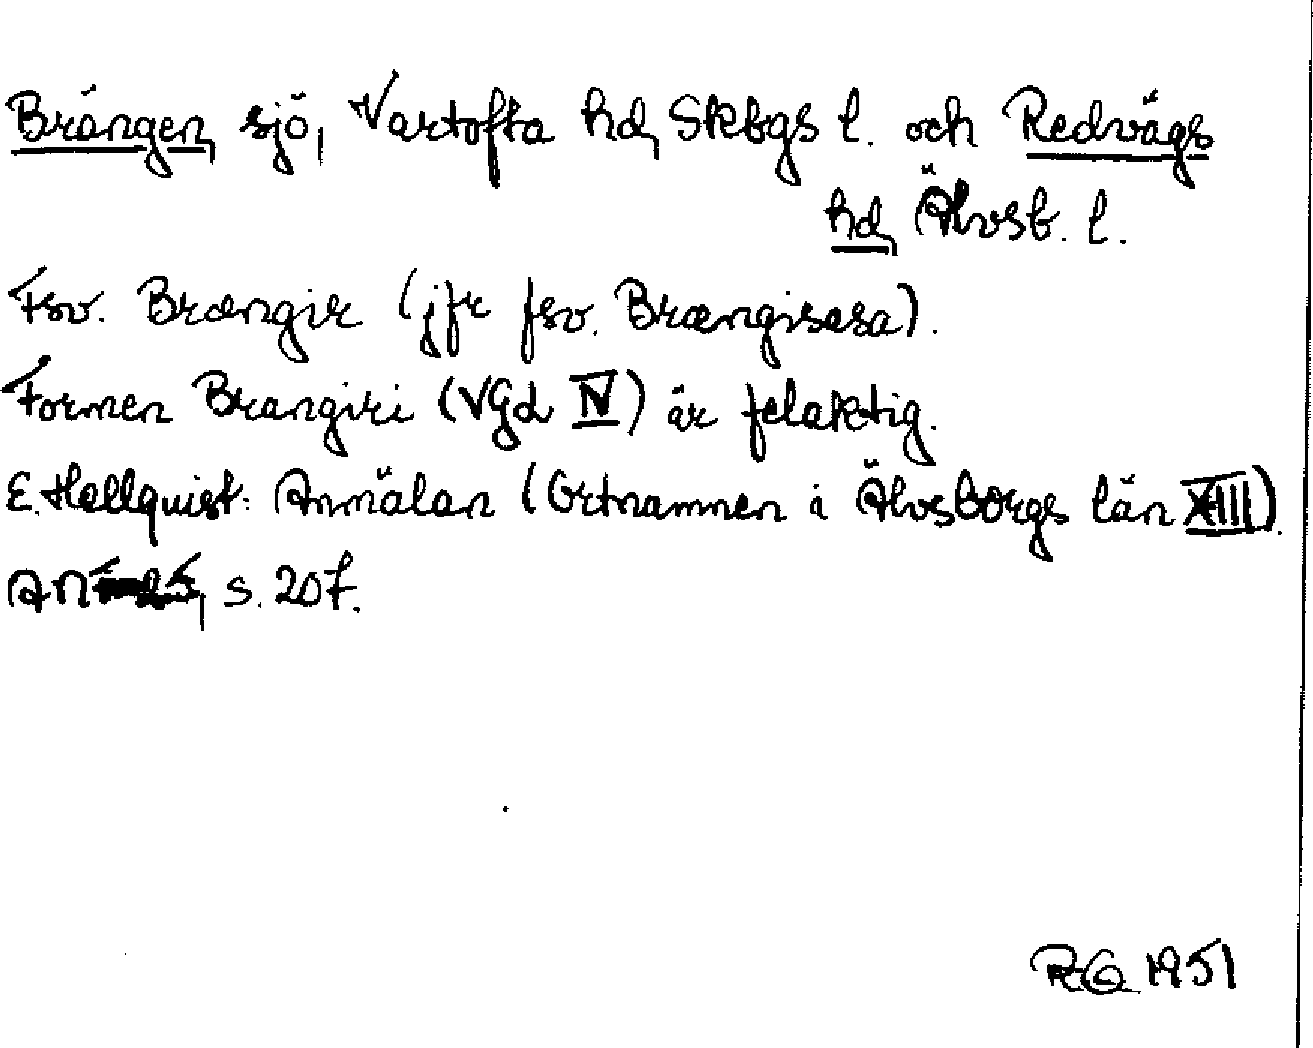 Brängen, sjö, Vartofta hd, Skbgs l. och Redvägs
hd, Älvsb. l.
Fsv. Brængir (jfr fsv. Brængisasa).
Formen Brangiri (VGL IV) är felaktig.
E. Hellquist: Anmälan (Ortnammen i Älvsborgs län XIII).
ANF 25, s. 207.
RG 1951